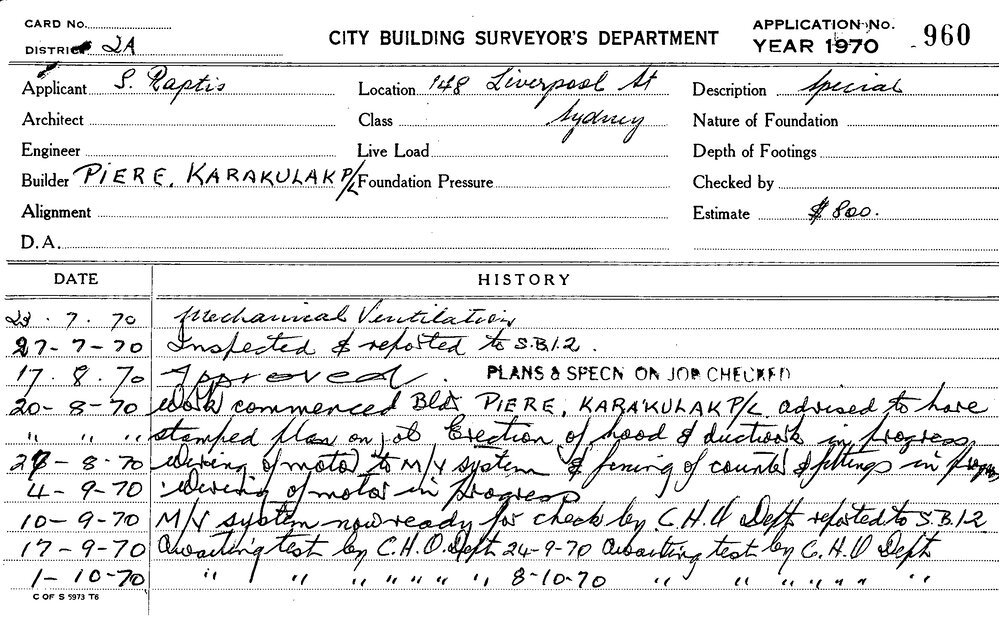 CARD No.
DISTRICT 2A
CITY BUILDING SURVEYOR'S DEPARTMENT
APPLICATION No. 960
YEAR 1970
Applicant S. Raptis
Location 148 Liverpool St
Description Special
Architect
Class Sydney
Nature of Foundation
Engineer
Live Load
Depth of Footings
Builder PIERE. KARAKULAK P/L
Foundation Pressure
Checked by
Alignment
Estimate $ 800.
D.A.
DATE HISTORY
23.7.70 Mechanical Ventilation
27-7-70 Inspected & reported to S.B.12.
17.8.70 Approved. PLANS & SPECN ON JOB CHECKED
20-8-70 Work commenced Bldr PIERE. KARAKULAK P/L advised to have
" " " stamped plan on job Erection of hood & ductwork in progress
28-8-70 Wiring of motor to M/V system & fixing of counter & fittings in progress
4-9-70 Wiring of motor in progress
10-9-70 M/V system now ready for check by C.H.O Dept reported to S.B.12
17-9-70 Awaiting test by C.H.O. Dept 24-9-70 Awaiting test by C.H.O Dept
1-10-70 " " " " " " " 8-10-70 " " " " " " "
C OF S 5973 T6